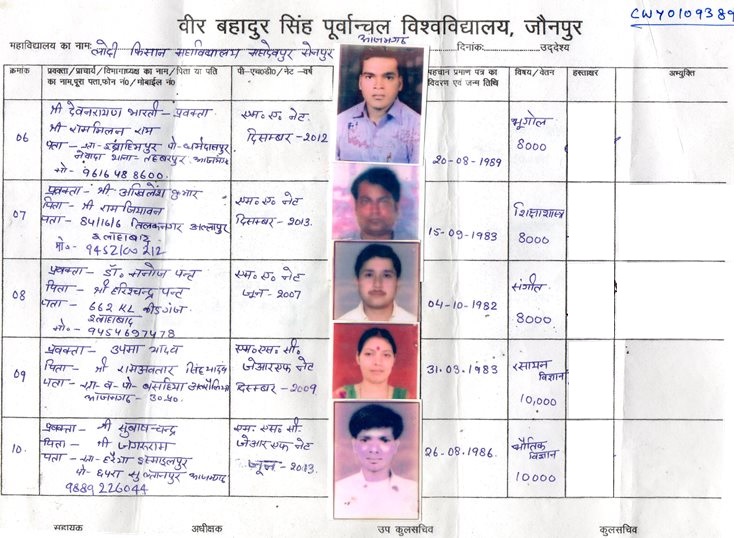 CWY0109389
वीर बहादुर सिंह पूर्वान्चल विश्वविद्यालय, जौनपुर
महाविद्यालय का नाम: लोदी किसान महाविद्यालय सहदेवपुर सेनपुर आजमगढ़ दिनांक: उद्देश्य
क्रमांक प्रवक्ता/प्राचार्य/विभागाध्यक्ष का नाम/पिता या पति का नाम,पूरा पता,फोन नं0/मोबाईल नं0 पी-एच0डी0/नेट-वर्ष पहचान प्रमाण पत्र का विवरण एवं जन्म तिथि विषय/वेतन हस्ताक्षर अभ्युक्ति
06
श्री देवनरायण भारती - प्रवक्ता
श्री राममिलन राम
पता - ग्रा- इब्राहिमपुर पो-
थाना- तहबरपुर आजमगढ़
मो- 9616488600.
एम॰ ए॰ नेट
दिसम्बर - 2012
20-08-1989
भूगोल
8000
07
प्रवक्ता - श्री अखिलेश कुमार
पिता - श्री रामजियावन
पता - 84/16/6 तिलकनगर अल्लापुर
इलाहाबाद
मो॰- 9452100212
एम॰ ए॰ नेट
दिसम्बर - 2013.
15-09-1983
शिक्षाशास्त्र
8000
08
प्रवक्ता - डॉ॰ मनोज पन्त
पिता - श्री हरिश्चन्द्र पन्त
पता - 662 KL कीडगंज
इलाहाबाद
मो॰- 9454697478
एम॰ ए॰ नेट
जून - 2007
04-10-1982
संगीत
8000
09
प्रवक्ता - उपमा यादव
पिता - श्री रामअवतार सिंह यादव
पता - ग्रा॰ व॰ पो- बसहिया
आजमगढ़ - उ॰प्र॰
एम॰ एस॰ सी॰
जेआरएफ नेट
दिसम्बर - 2009
31-03-1983
रसायन
विज्ञान
10,000
10.
प्रवक्ता - श्री सुबाषचन्द्र
पिता - श्री जगरूराम
पता - ग्रा- हरैया इस्माइलपुर
पो- छपरा सुल्तानपुर आजमगढ़
9889226044
एम॰ एस॰ सी॰
जेआरएफ नेट
जून - 2013.
26-08-1986.
भौतिक
विज्ञान
10000
सहायक अधीक्षक उप कुलसचिव कुलसचिव